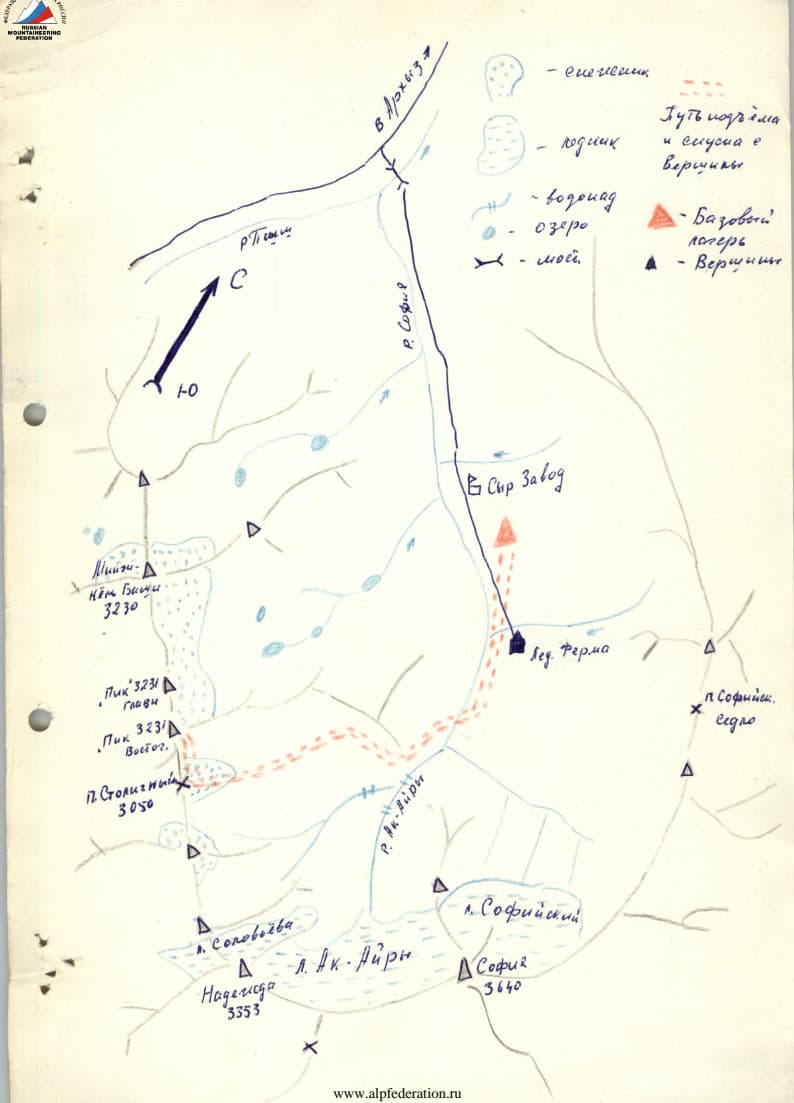 RUSSIAN
MOUNTAINEERING
FEDERATION
в Архыз
- снежник
- ледник
- водопад
- озеро
- мост
Путь подъёма
и спуска с
Вершины
- Базовый
лагерь
- Вершины
р. Пшиш
С
Ю
р. София
Сыр Завод
3230
"Пик" 3231
главн
"Пик 3231
Восточ.
п. Столичный
3050
Лед. Ферма
п. Софийск.
Седло
р. Ак-Айры
л. Софийский
л. Соловьёва
Л. Ак-Айры
Надежда
3353
София
3640
www.alpfederation.ru